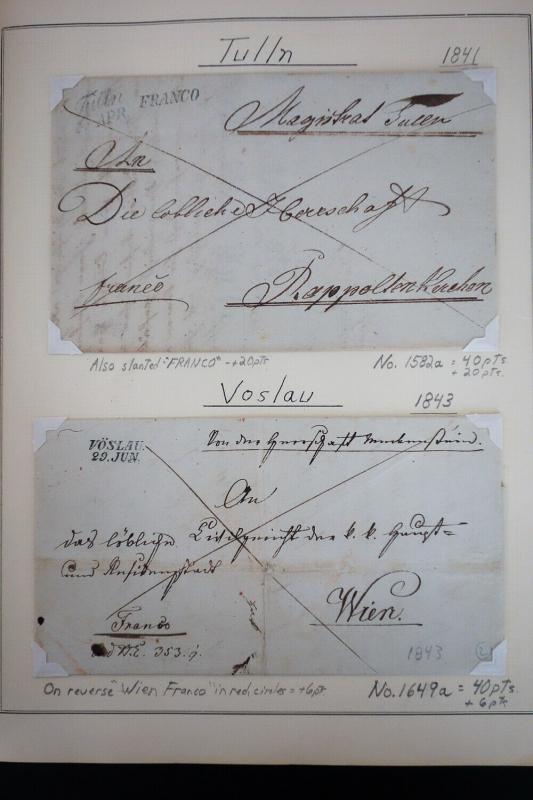 Tulln
1841
Tulln
APR. FRANCO
Magistrat Tulln
An
Die löbliche Herrschaft
franco
Rappoltenkirchen
Also slanted "FRANCO" - +20pts
No. 1582a = 40pts
+ 20pts.
Voslau
1843
VÖSLAU.
29. JUN.
Von der Herrschaft Merkenstein.
An
das löbliche der k. k. Haupt=
und Residenzstadt
Wien.
Franco
353.
1843
On reverse "Wien Franco" in red circles = +6pt
No. 1649a = 40pts.
+ 6pts